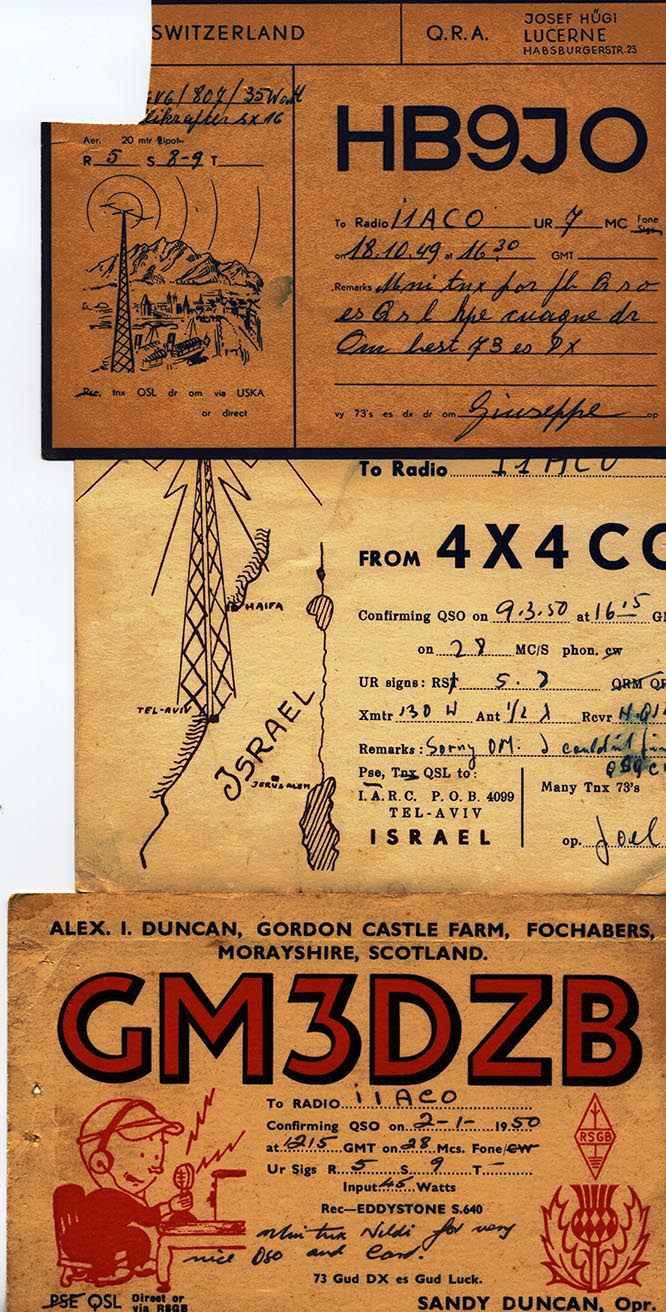 SWITZERLAND
Q.R.A.
JOSEF HÜGI
LUCERNE
HABSBURGERSTR.23
6V6/807/35Watt
SX16
Aer. 20 mtr Dipol
R 5 S 8-9 T
Pse. tnx QSL dr om via USKA
or direct
HB9JO
To Radio I1ACO UR 7 MC Fone
Sigs
on 18.10.49 at 16 30 GMT
Remarks Mni tnx for fb Qso
es Qsl hpe cuagne dr
Om best 73 es DX
vy 73's es dx dr om Giuseppe op
To Radio I1ACO
FROM 4X4CC
Confirming QSO on 9.3.50 at 16 15 G
on 28 MC/S phon. cw
UR signs: RST 5. 7 QRM QR
Xmtr 130 W Ant 1/2 λ Rcvr H.Q12
Remarks: Sorry OM. I couldn't
Pse, Tnx QSL to:
I.A.R.C. P.O.B. 4099
TEL-AVIV
ISRAEL
Many Tnx 73's
op. Joel
HAIFA
TEL-AVIV
ISRAEL
JERUSALEM
ALEX. I. DUNCAN, GORDON CASTLE FARM, FOCHABERS,
MORAYSHIRE, SCOTLAND.
GM3DZB
To RADIO I1ACO
Confirming QSO on 2-1- 1950
at 1215 GMT on 28 Mcs. Fone/CW
Ur Sigs R 5 S 9 T -
Input 45 Watts
Rec—EDDYSTONE S.640
Mni tnx Neldi for very
nice Qso and Card.
73 Gud DX es Gud Luck.
PSE QSL Direct or
via RSGB
SANDY DUNCAN, Opr.
RSGB